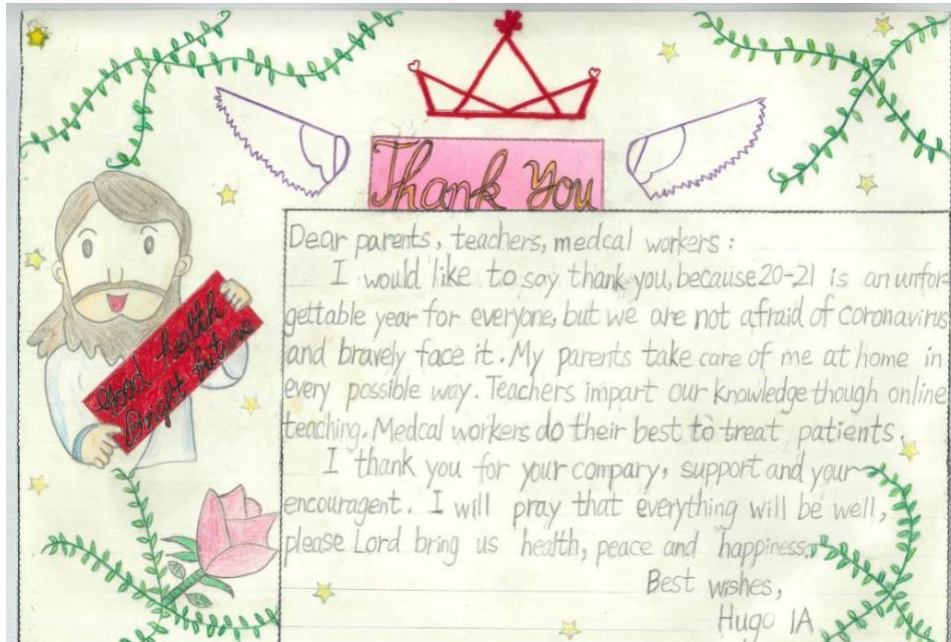 Thank You
Good health
Bright future
Dear parents, teachers, medcal workers :
I would like to say thank you, because 20-21 is an unfor
gettable year for everyone, but we are not afraid of coronavirus
and bravely face it. My parents take care of me at home in
every possible way. Teachers impart our knowledge though online
teaching. Medcal workers do their best to treat patients.
I thank you for your compary, support and your
encouragent. I will pray that everything will be well,
please Lord bring us health, peace and happiness.
Best wishes,
Hugo 1A